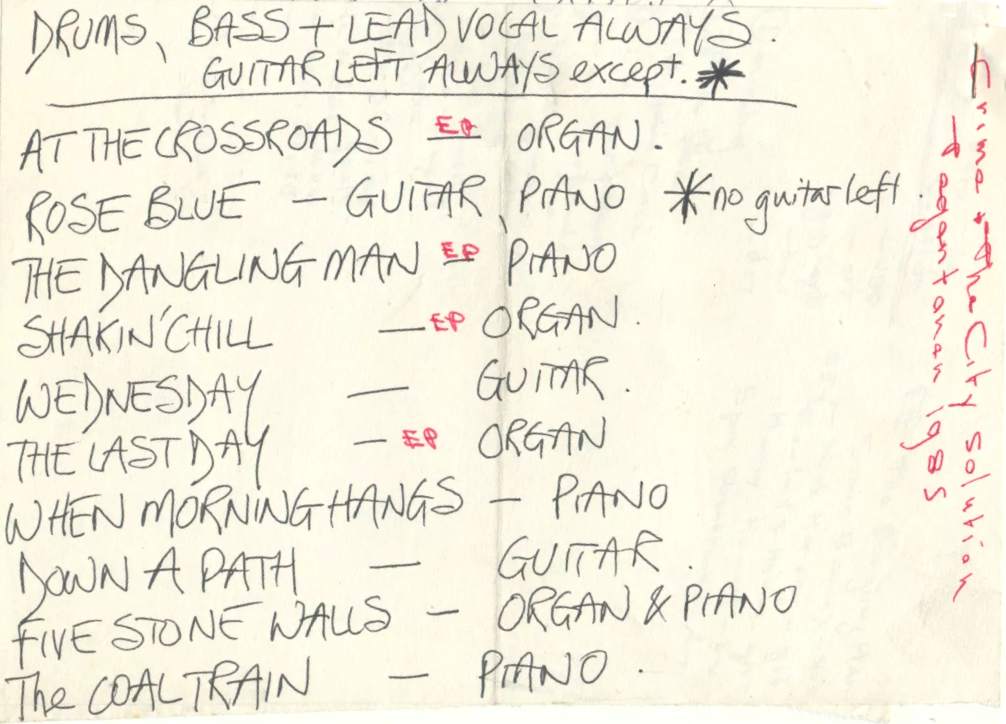 DRUMS, BASS + LEAD VOCAL ALWAYS.
GUITAR LEFT ALWAYS except. *
AT THE CROSSROADS — EP ORGAN.
ROSE BLUE — GUITAR, PIANO * no guitar left.
THE DANGLING MAN — EP PIANO
SHAKIN' CHILL — EP ORGAN.
WEDNESDAY — GUITAR.
THE LAST DAY — EP ORGAN
WHEN MORNING HANGS — PIANO
DOWN A PATH — GUITAR.
FIVE STONE WALLS — ORGAN & PIANO
The COAL TRAIN — PIANO.
Crime + the City Solution
1985